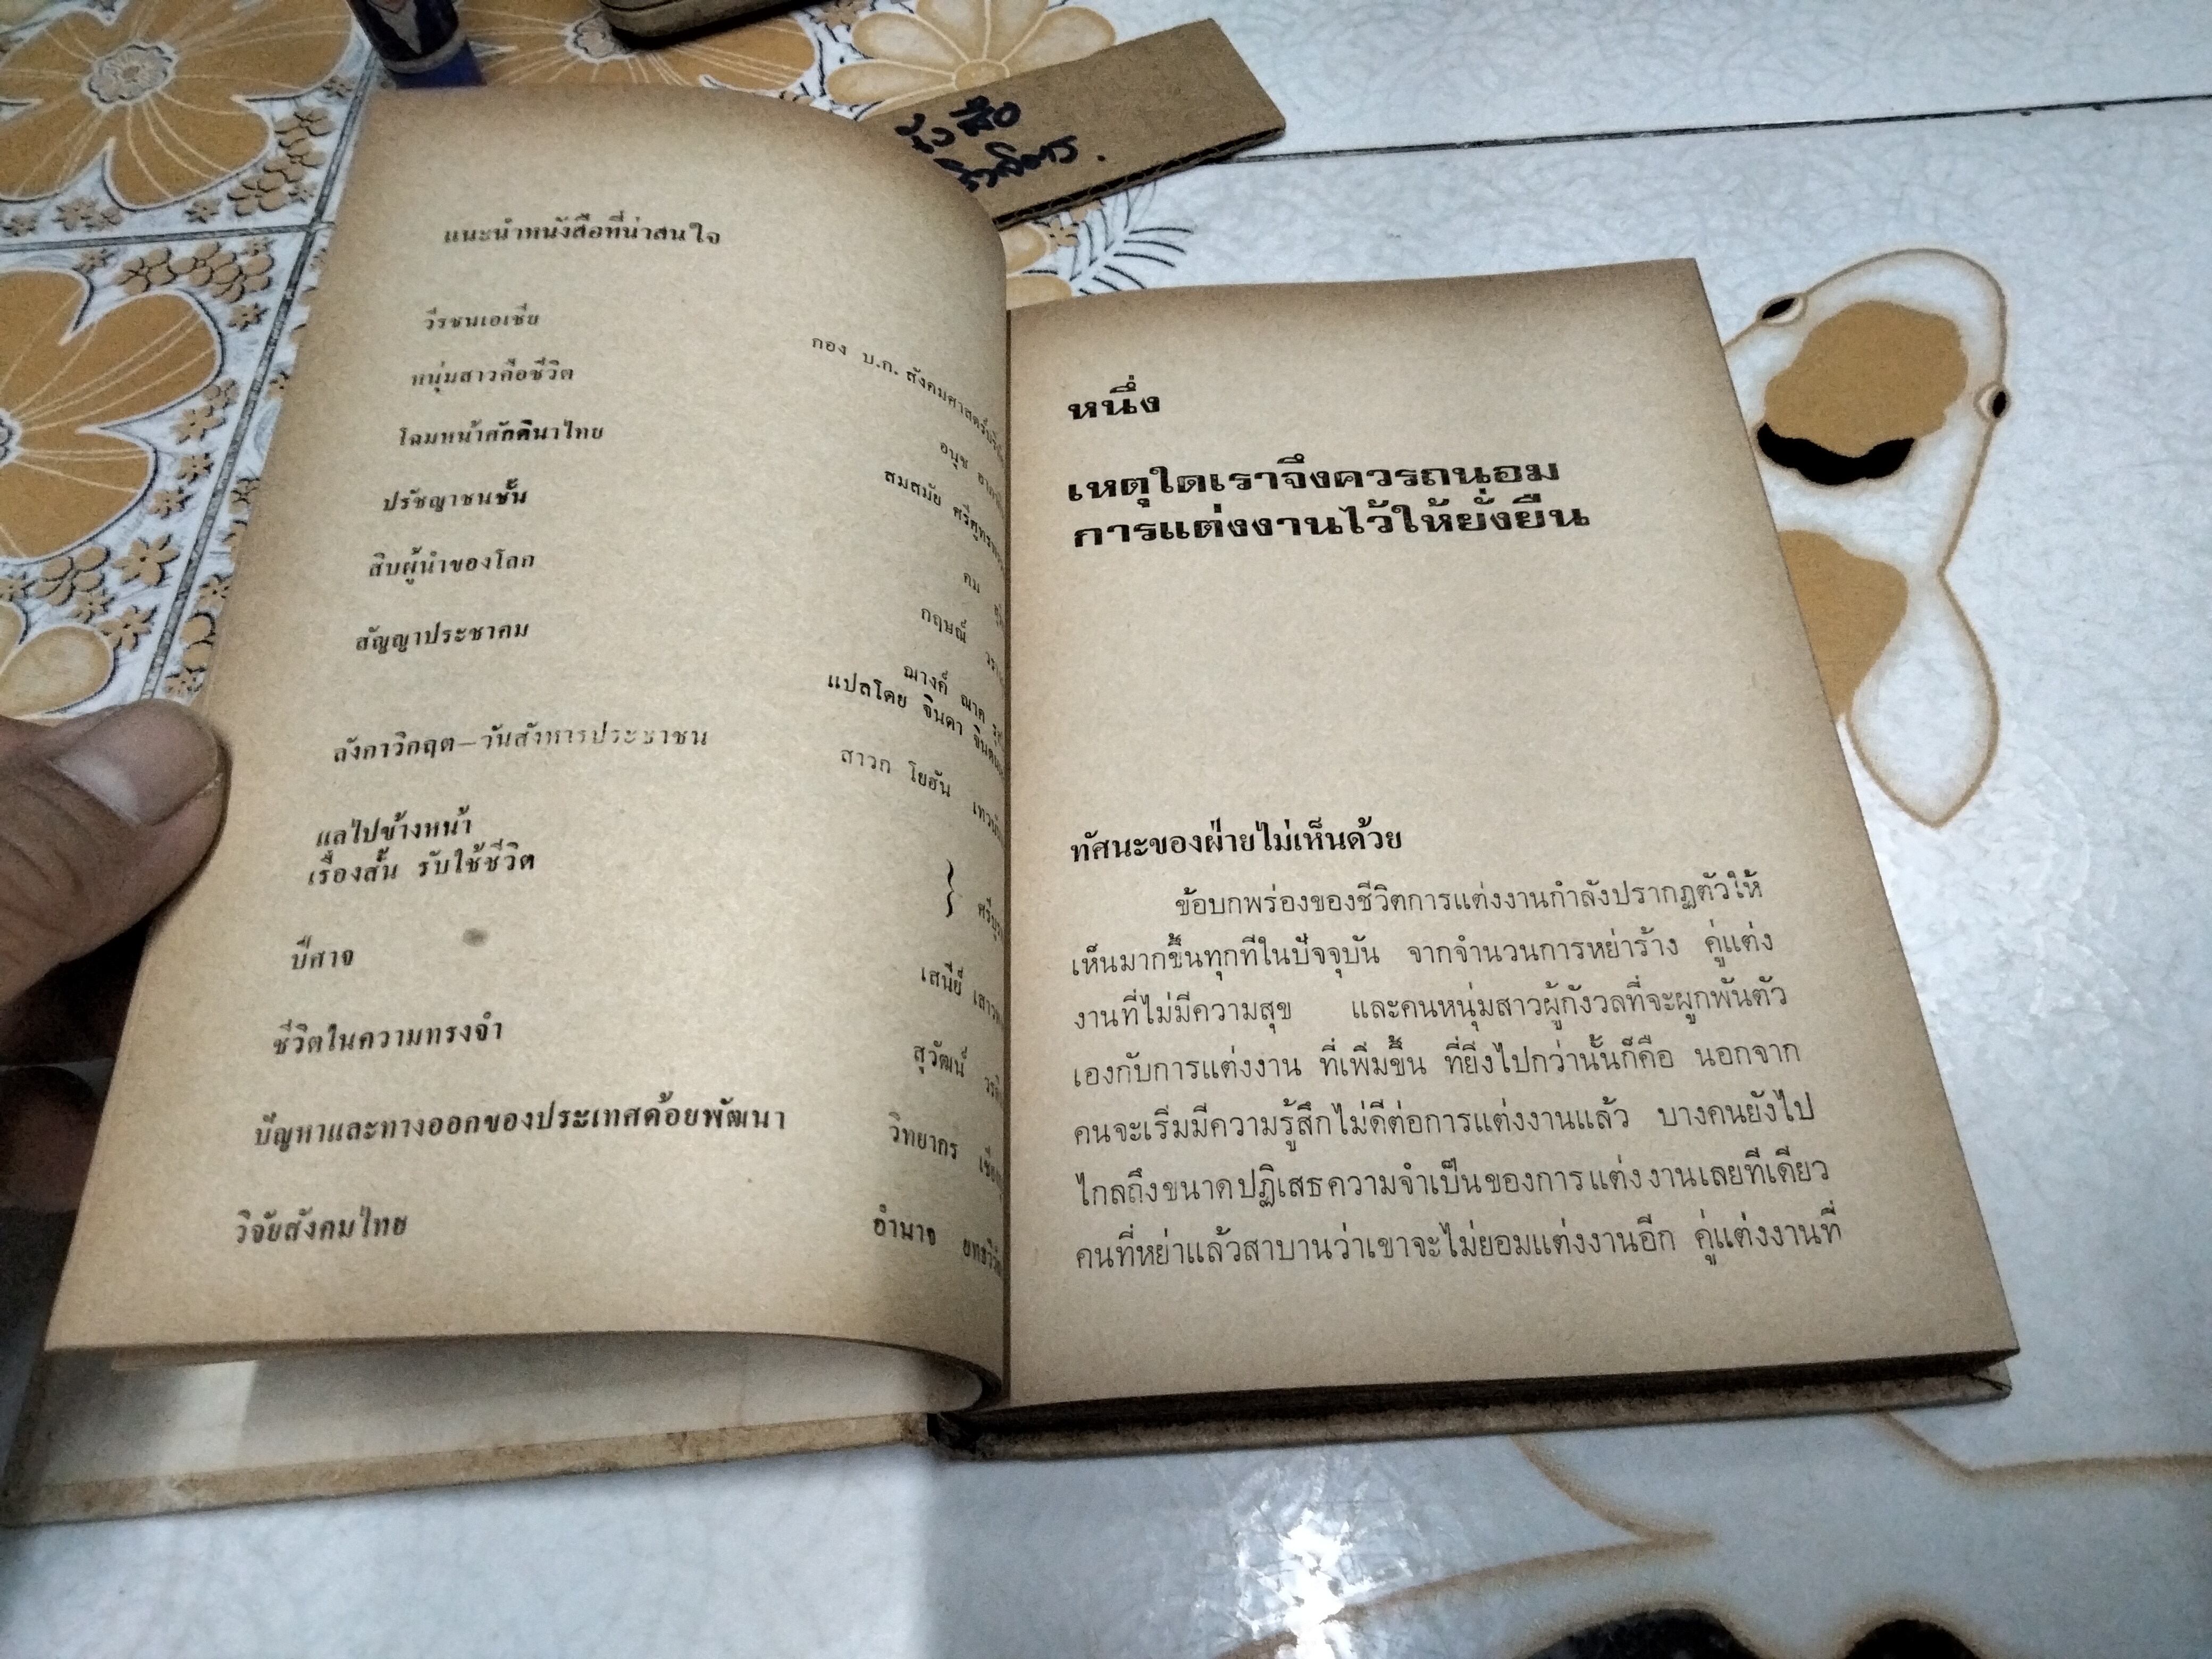 แนะนำหนังสือที่น่าสนใจ
วีรชนเอเซีย กอง บ.ก. สังคมศาสตร์
หนุ่มสาวคือชีวิต อนุช
โฉมหน้าศักดินาไทย สมสมัย ศรีศูทรพรรณ
ปรัชญาชนชั้น คม
สิบผู้นำของโลก กฤษณ์
สัญญาประชาคม ฌางค์ ณาค
แปลโดย จินดา
ลังกาวิกฤต–วันสังหารประชาชน สาวก โยฮัน
แลไปข้างหน้า
เรื่องสั้น รับใช้ชีวิต
ปีศาจ เสนีย์
ชีวิตในความทรงจำ สุวัฒน์
ปัญหาและทางออกของประเทศด้อยพัฒนา วิทยากร
วิจัยสังคมไทย อำนาจ
หนึ่ง
เหตุใดเราจึงควรถนอม
การแต่งงานไว้ให้ยั่งยืน
ทัศนะของฝ่ายไม่เห็นด้วย
ข้อบกพร่องของชีวิตการแต่งงานกำลังปรากฏตัวให้
เห็นมากขึ้นทุกทีในปัจจุบัน จากจำนวนการหย่าร้าง คู่แต่ง
งานที่ไม่มีความสุข และคนหนุ่มสาวผู้กังวลที่จะผูกพันตัว
เองกับการแต่งงาน ที่เพิ่มขึ้น ที่ยิ่งไปกว่านั้นก็คือ นอกจาก
คนจะเริ่มมีความรู้สึกไม่ดีต่อการแต่งงานแล้ว บางคนยังไป
ไกลถึงขนาดปฏิเสธความจำเป็นของการแต่งงานเลยทีเดียว
คนที่หย่าแล้วสาบานว่าเขาจะไม่ยอมแต่งงานอีก คู่แต่งงานที่